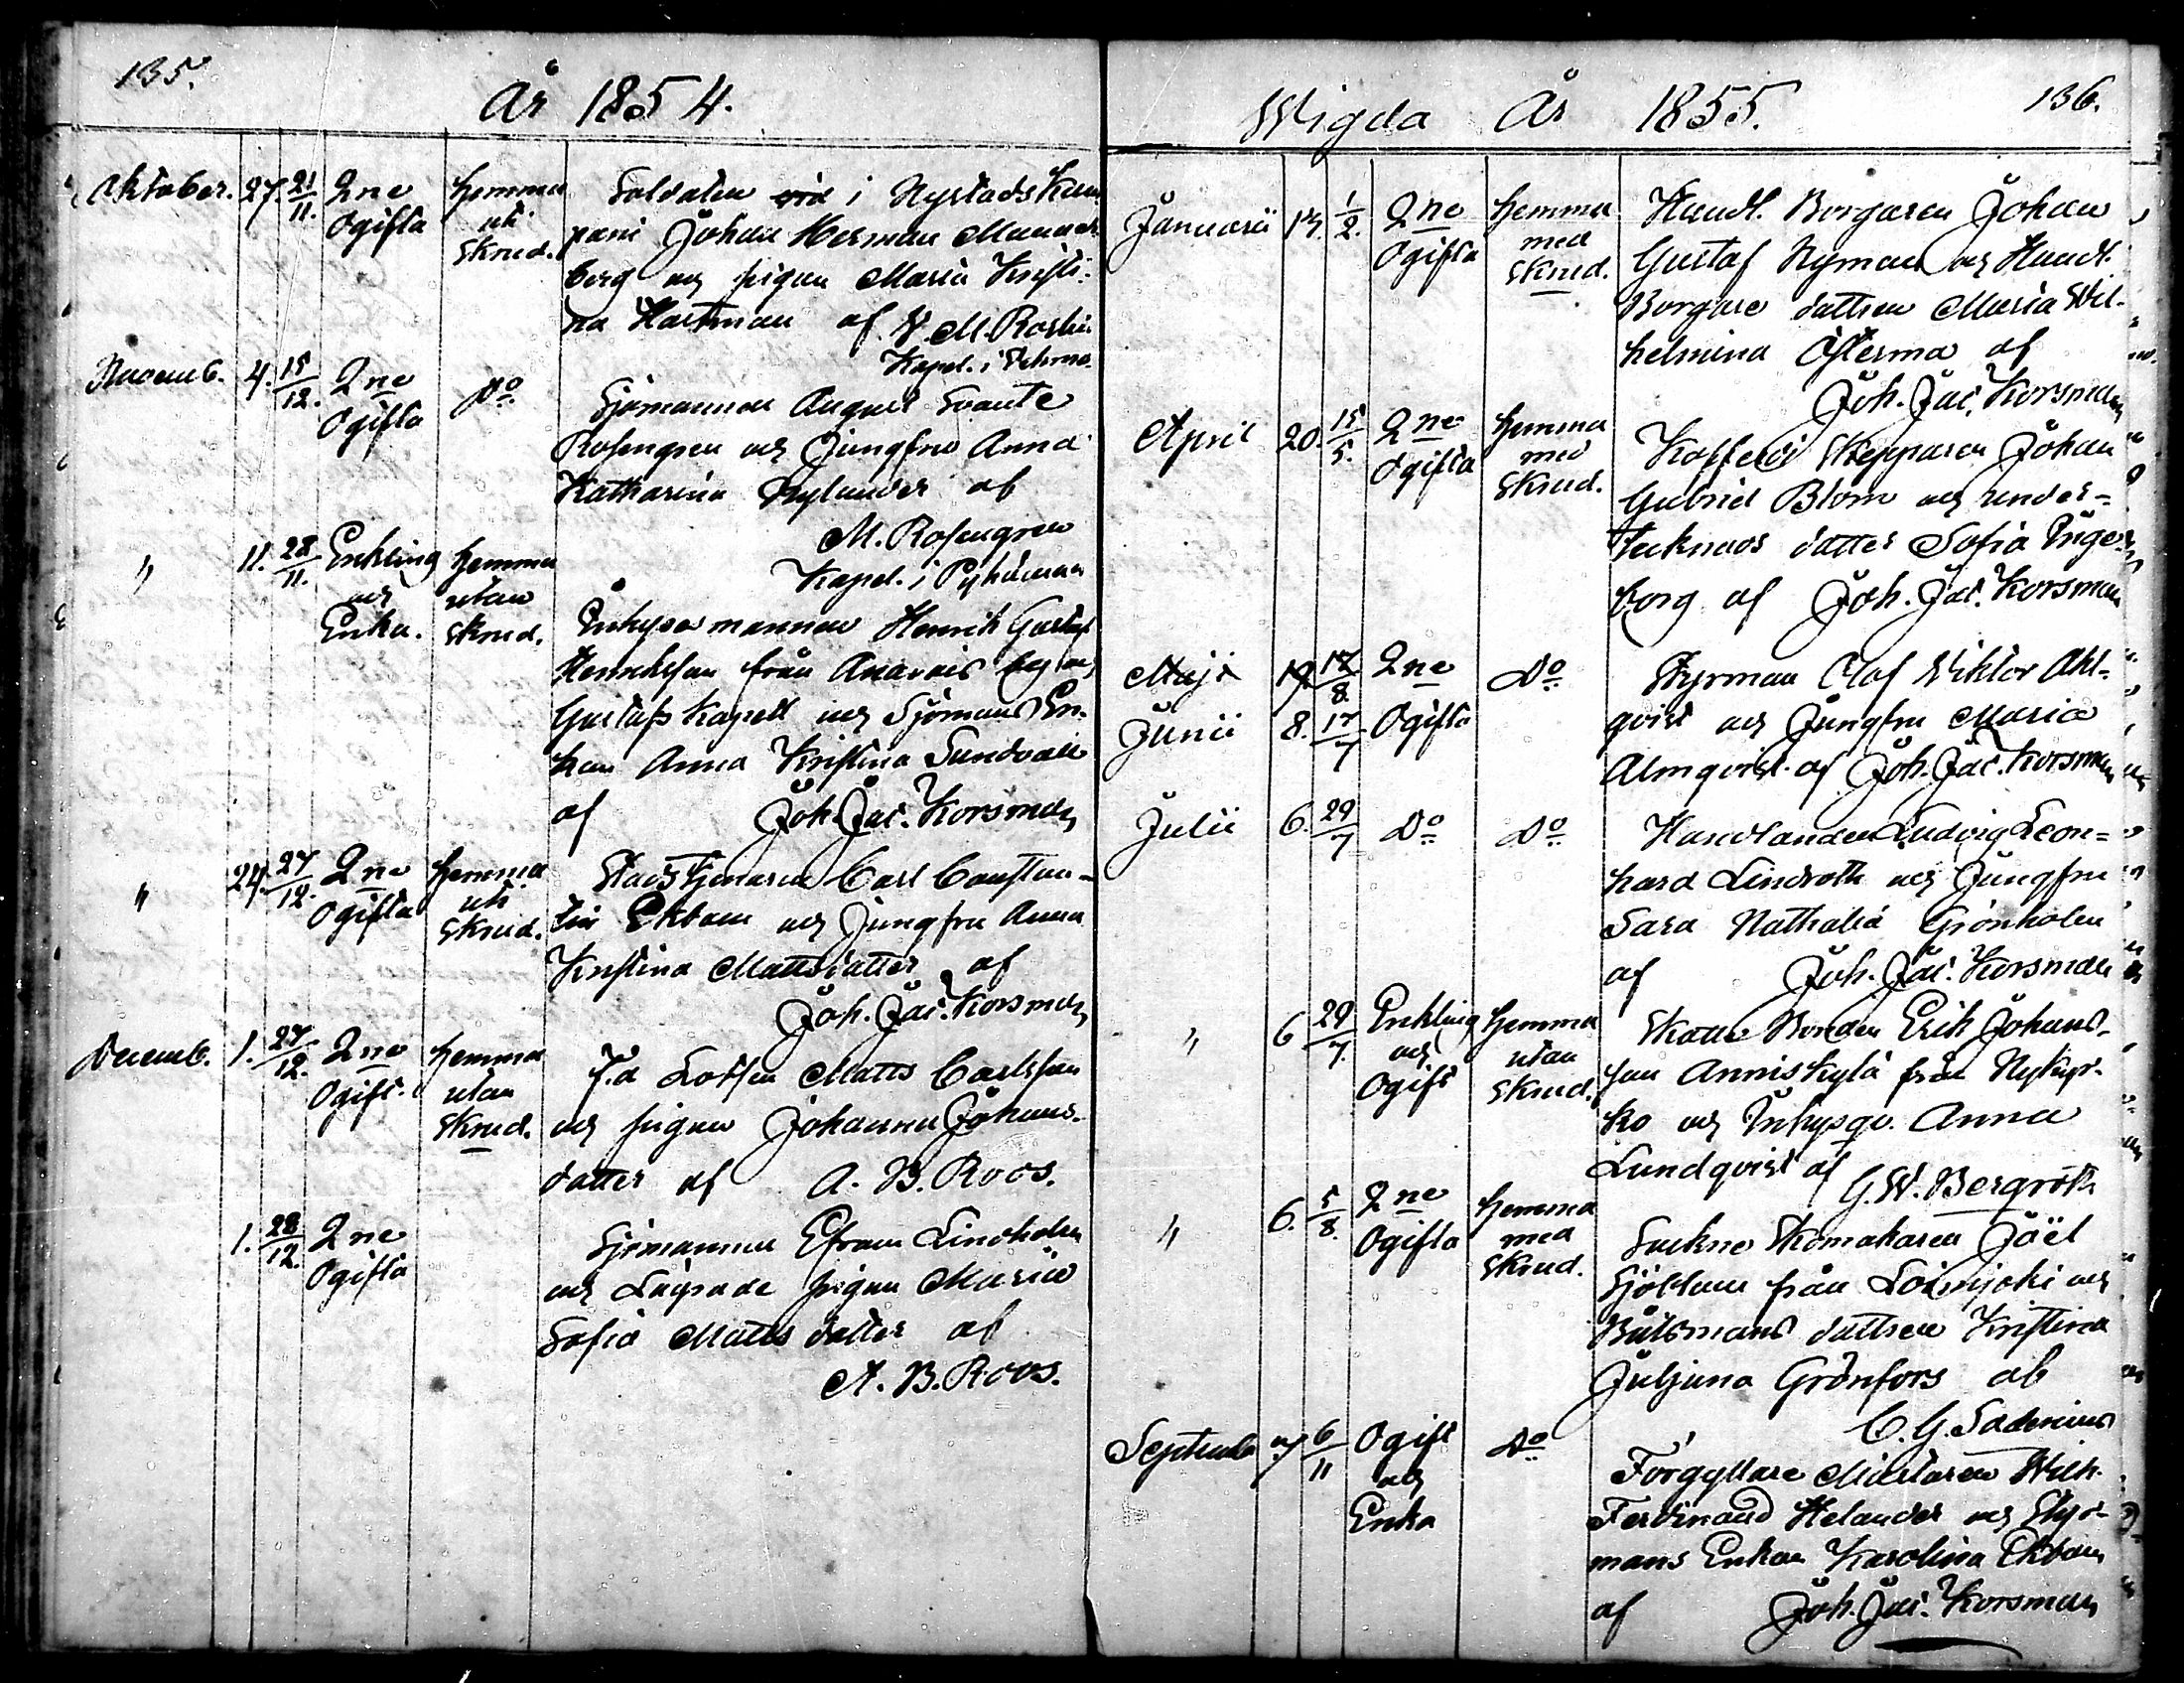 135.
År 1854.
Oktober. 27. 21/11. 2ne Ogifta hemma uti Skrud.
Soldaten vid i Nystads Kom
pani Johan Herman Manner
berg och pigan Maria Kristi-
na Hartman af V. M. Roslin
Kapel. i
Novemb. 4. 15/12. 2ne Ogifta Do
Sjömannen August Svante
Rosengren och Jungfru Anna
Katharina Nylander af
M. Rosengren
Kapel. i Pyhämaa
" 11. 28/11. Enkling och Enka. hemma utan Skrud.
Inhyses mannen Henrik Gustaf
Henriksson från Anavais by och
Gustafs Kapell och Sjömans En-
kan Anna Kristina Sundvall
af Joh. Jac. Korsman
" 24. 27/12. 2ne Ogifta hemma uti Skrud.
Stadstjenaren Carl Constan-
tin Ekbom och Jungfru Anna
Kristina Mattsdotter af
Joh. Jac. Korsman
Decemb. 1. 27/12. 2ne Ogift. hemma utan Skrud.
F.d Lotsen Matts Carlsson
och pigan Johanna Johans-
dotter af A. B. Roos.
1. 28/12. 2ne Ogifta
Sjömannen Efraim Lindholm
och Lägrade pigan Maria
Sofia Matts dotter af
A. B. Roos.
Wigda År 1855. 136.
Januarii 14. 1/2. 2ne Ogifta hemma med Skrud.
Handl. Borgaren Johan
Gustaf Nyman och Handl.
Borgare dottren Maria Wil-
helmina Österma af
Joh. Jac. Korsman
April 20. 15/5. 2ne Ogifta hemma med Skrud.
Koffardi Skepparen Johan
Gabriel Blom och under-
Tecknads dotter Sofia Inge-
borg af Joh. Jac. Korsman
Maji 19 17/8. 2ne Do
Junii 8. 17/7 Ogifta
Styrman Olof Viktor Ahl-
qvist och Jungfru Maria
Almqvist af Joh. Jac. Korsman
Julii 6. 29/7 Do Do
Handlanden Ludvig Leon-
hard Lindroth och Jungfru
Sara Nathalia Grönholm
af Joh. Jac. Korsman
" 6 29/7. Enkling och Ogift hemma utan Skrud.
Skatte Bonden Erik Johans-
son Anniskylä från Nykyr-
ko och Inhysqv. Anna
Lundqvist af G. W. Bergroth
" 6. 5/8. 2ne Ogifta hemma med Skrud.
Sockne Skomakaren Joël
Sjöblom från Loimijoki och
Båtsmans dottren Kristina
Juljana Grönfors af
C. G. Sadenius
Septemb 7. 6/11 Ogift och Enka Do
Förgyllare Mästaren Wilh.
Ferdinand Helander och Styr-
mans Enkan Karolina Ekbom
af Joh. Jac. Korsman